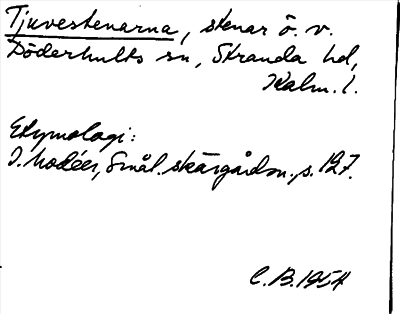 Tjuvestenarna, stenar ö. v.
Döderhults sn, Stranda hd,
Kalm. l.
Etymologi:
I. Modéer, Smål. skärgårdsn. s. 127.
C. B. 1954